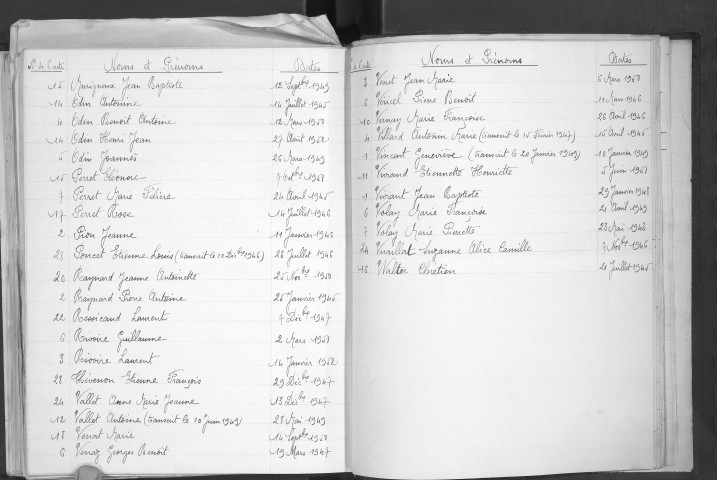 N° de l'acte Noms et Prénoms Dates
15 Jean Baptiste 12 Septbre 1949
14 Odin Antoinine 14 Juillet 1945
4 Odin Benoit Antoine 12 Mars 1950
14 Odin Henri Jean 27 Août 1952
5 Odin Joannès 26 Mars 1949
15 Perret Eléonore 9 1951
7 Perret Marie 24 Avril 1945
17 Perret Rose 14 Juillet 1946
2 Pion Jeanne 11 Janvier 1946
23 Poncet Etienne Louis (transcrit le 10 Décbre 1946) 26 Juillet 1946
26 Raynard Jeanne Antoinette 25 Novbre 1950
2 Raynard Pierre Antoine 26 Janvier 1945
22 Laurent 7 Décbre 1947
6 Rivoire Guillaume 2 Mars 1950
3 Rivoire Laurent 14 Janvier 1952
23 Thévenon Etienne François 29 Décbre 1947
24 Vallet Anne Marie Jeanne 13 Décbre 1947
12 Vallet Antoine (transcrit le 10 Juin 1949) 28 Mai 1949
15 Venat Marie 14 Septbre 1950
6 Georges Benoit 19 Mars 1947
de l'acte Noms et Prénoms Dates
3 Venet Jean Marie 6 Mars 1950
6 Vericel Benoit 11 Mars 1946
10 Vernay Marie Françoise 26 Avril 1946
4 Villard Antonin Marie (transcrit le 15 Février 1947) 15 Avril 1945
1 Vincent Geneviève (transcrit le 20 Janvier 1949) 10 Janvier 1949
11 Virand Etiennette Henriette 5 Juin 1951
1 Vivant Jean Baptiste 29 Janvier 1948
6 Volay Marie Françoise 21 Avril 1949
7 Volay Marie Pierrette 22 Mai 1948
24 Suzanne Alice Camille 7 Novbre 1946
16 Walter Chrétien 21 Juillet 1945